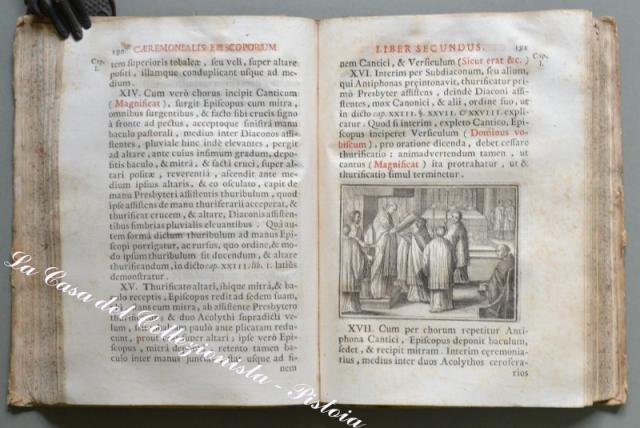 190 CÆREMONIALIS EPISCOPORUM
Cap. I.
tem superioris tobaleæ, seu veli, super altare
positi, illamque conduplicant usque ad me-
dium.
XIV. Cum verò chorus incipit Canticum
(Magnificat) surgit Episcopus cum mitra,
omnibus surgentibus, & facto sibi crucis signo
à fronte ad pectus, acceptoque sinistrâ manu
baculo pastorali, medius inter Diaconos assi-
stentes, pluviale hinc inde elevantes, pergit
ad altare, ante cuius infimum gradum, depo-
sitis baculo, & mitrâ, & facta cruci, super al-
tari positæ, reverentiâ, ascendit ante me
dium ipsius altaris, & eo osculato, capit de
manu Presbyteri assistentis thuribulum, quod
ipse assistens de manu thuriferarii acceperat, &
thurificat crucem, & altare, Diaconis assisten-
tibus fimbrias pluvialis elevantibus. Quâ au-
tem formâ dictum thuribulum ad manus Epi-
scopi porrigatur, ac rursus, quo ordine, & mo-
do ipsum thuribulum sit ducendum, & altare
thurificandum, in dicto cap. XXIII. lib. I. latiùs
demonstratur.
XV. Thurificato altari, ibique mitrâ, & ba-
culo receptis, Episcopus redit ad sedem suam,
stans cum mitra, ab assistente Presbytero
thurificatur, & duo Acolythi supradicti ve-
lum, paulò ante plicatum redu-
cunt, prout super altari; ipse verò Epi-
scopus, mitrâ depositâ, retento tamen ba-
culo inter manus usque ad fi-
nem
LIBER SECUNDUS. 191
Cap. I.
nem Cantici, & Versiculum (Sicut erat &c.)
XVI. Interim per Subdiaconum, seu alium,
qui Antiphonas præintonavit, thurificatur pri-
mò Presbyter assistens, deinde Diaconi assi-
stentes, mox Canonici, & alii, ordine suo, ut
in dicto cap. XXIII. §. XXVII. & XXVIII. expli-
catur. Quod si interim, expleto Cantico, Epi-
scopus inciperet Versiculum (Dominus vo-
biscum), pro oratione dicenda, debet cessare
thurificatio: animadvertendum tamen, ut
cantus (Magnificat) ita protrahatur, ut &
thurificatio simul terminetur.
XVII. Cum per chorum repetitur Anti-
phona Cantici, Episcopus deponit baculum,
sedet, & recipit mitram. Interim cęremonia-
rius, medius inter duos Acolythos ceroferа-
rios
La Casa del Collezionista - Pistoia